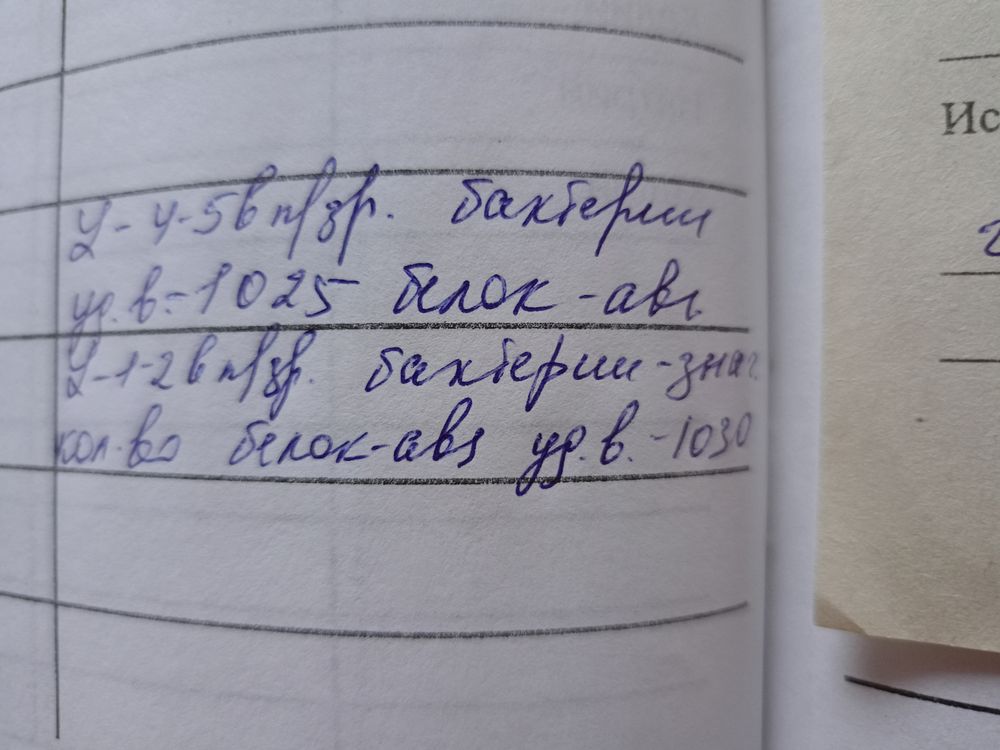 L-4-5 в п/зр. бактерии
уд.в.-1025 белок-авs
L-1-2 в п/зр. бактерии-знач.
кол-во белок-авs уд.в.-1030
Ис